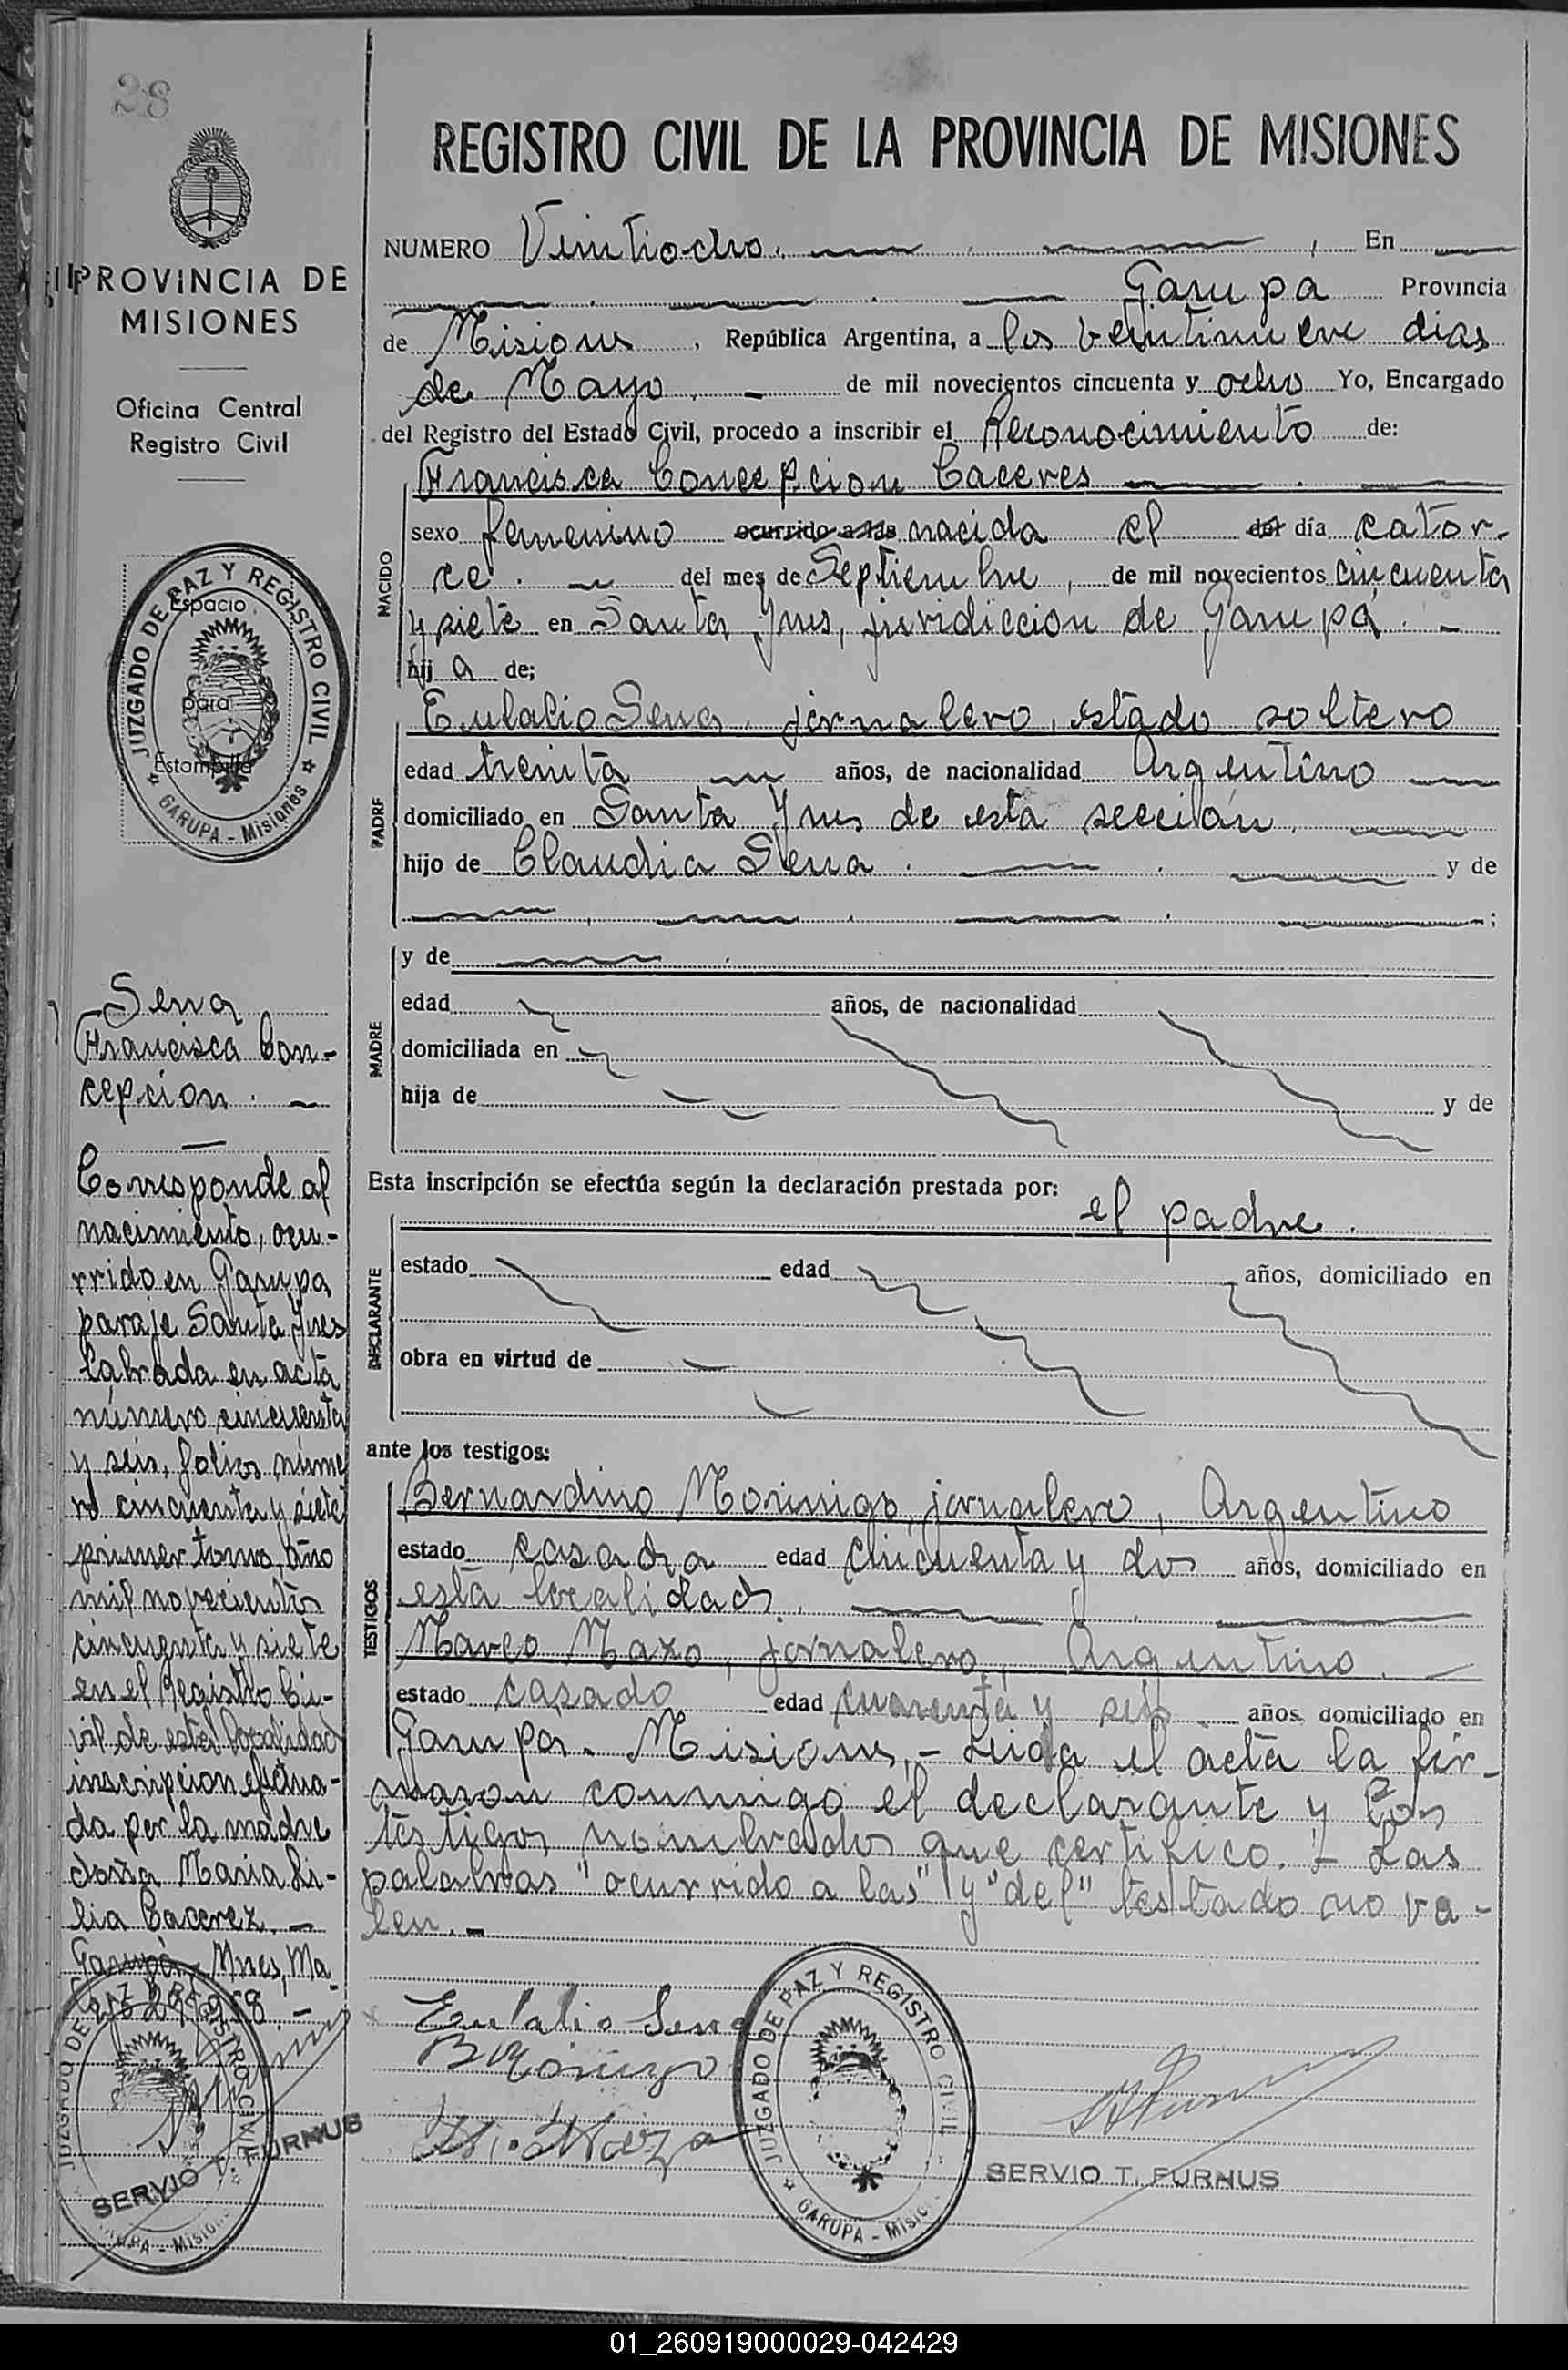 28
REGISTRO CIVIL DE LA PROVINCIA DE MISIONES
PROVINCIA DE
MISIONES
Oficina Central
Registro Civil
JUZGADO DE PAZ Y REGISTRO CIVIL
GARUPA - Misiones
Espacio
para
Estampilla
Sena
Francisca Con-
cepcion. -
Corresponde al
nacimiento, ocu-
rrido en Garupa
paraje Santa Ynes
labrada en acta
número cincuenta
y seis, folios núme
ro cincuenta y siete
primer tomo, año
mil novecientos
cincuenta y siete
en el Registro Ci-
vil de esta localidad
inscripcion efectua-
da por la madre
doña Maria Li-
lia Cacerez. -
Garupá - Mnes, Ma-
SERVIO T. FURNUS
NUMERO Veintiocho. , En
Garupa Provincia
de Misiones , República Argentina, a los veintinueve dias
de Mayo. - de mil novecientos cincuenta y ocho Yo, Encargado
del Registro del Estado Civil, procedo a inscribir el Reconocimiento de:
Francisca Concepcion Caceres
NACIDO
sexo femenino ocurrido a las nacida el del día cator-
ce. del mes de Septiembre, de mil novecientos cincuenta
y siete en Santa Ynes, juridiccion de Garupá. -
hij a de;
PADRE
Eulalio Sena. jornalero, estado soltero
edad treinta años, de nacionalidad Argentino
domiciliado en Santa Ynes de esta sección.
hijo de Claudia Sena. y de
;
MADRE
y de
edad años, de nacionalidad
domiciliada en
hija de y de
Esta inscripción se efectúa según la declaración prestada por:
el padre.
DECLARANTE
estado edad años, domiciliado en
obra en virtud de
ante los testigos:
TESTIGOS
Bernardino Morinigo, jornalero, Argentino
estado casado edad cincuenta y dos años, domiciliado en
esta localidad.
Marco Mazo, jornalero, Argentino. -
estado casado edad cuarenta y seis años domiciliado en
Garupá. Misiones,- Leida el acta la fir-
maron conmigo el declarante y los
testigos nombrados que certifico. - Las
palabras "ocurrido a las" y "del" testado no va-
len. -
Eulalio Sena
B Morinigo
JUZGADO DE PAZ Y REGISTRO CIVIL
GARUPA - Misio
SERVIO T. FURNUS
01_260919000029-042429